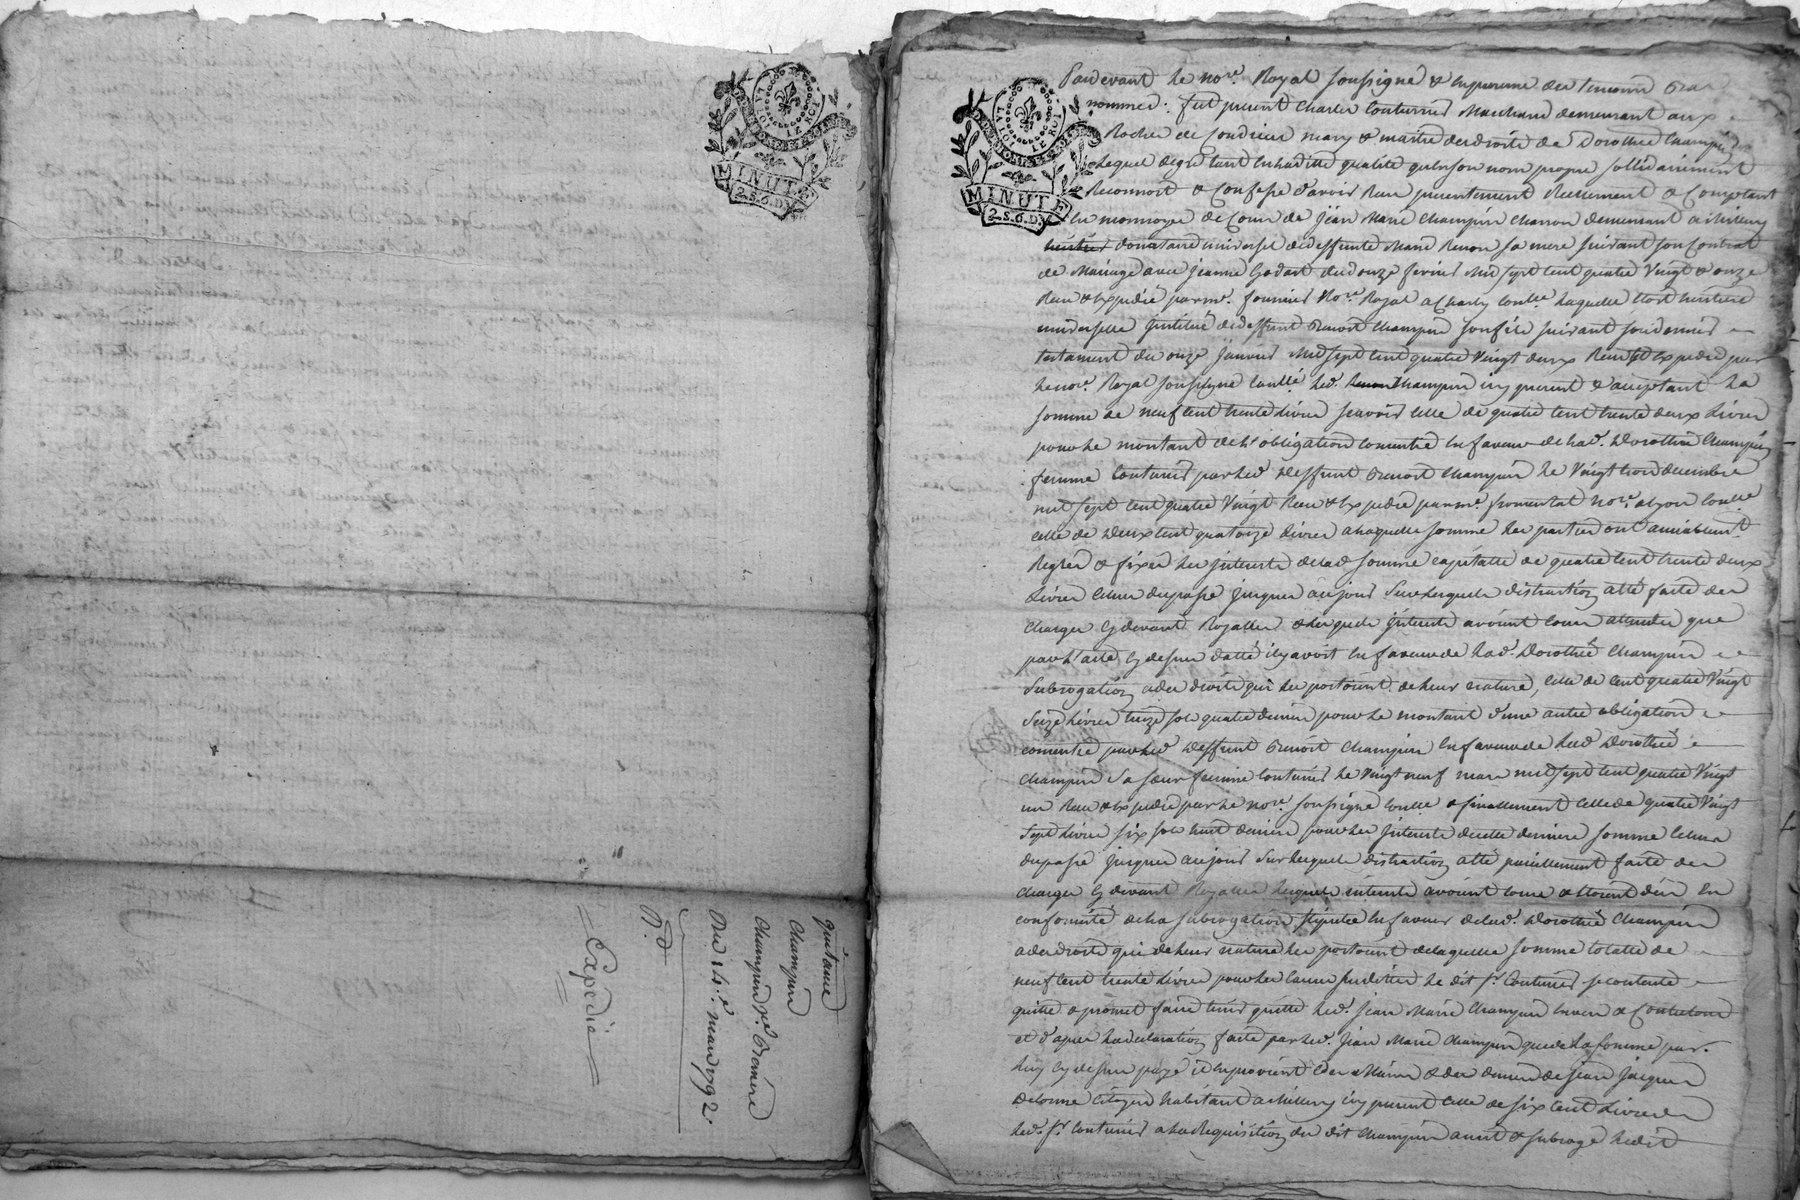 LA LOI ET LE ROI
MINUTE
2.S.6.D.
quittance
Champin
Champin Vve Bremére
Du 14.e mars 1792.
Expédié
LA LOI ET LE ROI
MINUTE
2.S.6.D.
Pardevant le nore. Royal soussigné & en presence des temoins bas
nommes. fut present Charles Couturier Marchand demeurant aux
Roches de Condrieu mary & maitre des droits de Dorothée Champin
Lequel degré tant en ladite qualité qu'en son nom propre sollidairement
Reconnoit & Confesse d'avoir Reçu presentement Reellement & Comptant
En monnoye de Cours de Jean Marie Champin Charron demeurant a
donataire universel de deffunte Marie sa mere suivant son Contrat
de Mariage avec Jeanne Godart du onze fevrier Mil sept cent quatre Vingt & onze
Reçu & Expedié par me. fournier Nore. Royal a Charly Conlle. laquelle etoit heritiere
universelle Instituée de deffunt Benoit Champin son fils suivant son dernier
testament du onze Janvier Mil sept cent quatre Vingt deux Reçu et Expedié par
le nore. Royal soussigné Conllé led. Champin icy present & acceptant La
somme de neuf cent trente Livres scavoir celle de quatre cent trente deux Livres
pour le montant de l'obligation consentie en faveur de lad. Dorothée Champin
femme Couturier par led. deffunt Benoit Champin le Vingt trois decembre
mil sept cent quatre Vingt Reçu & Expedié par me. fromental nore. a Lyon Conllé
celle de Deux cent quatorze Livres a laquelle somme les parties ont amiablemt.
Reglés & fixés les Interets de lad. somme capitalle de quatre cent trente deux
Livres Courus du passé Jusques aujourd. sur lesquels distraction a été faite des
charges Cy devant Royalles & lesquels Interets avoient couru attendu que
par l'acte Cy dessus datté il y avoit En faveur de lad. Dorothée Champin
subrogation a des droits qui les portoient de leur nature, celle de cent quatre Vingt
seize Livres treize sols quatre deniers pour le montant d'une autre obligation
consentie par led. deffunt Benoit Champin En faveur de lad. Dorothée
Champin sa sœur femme Couturier le Vingt neuf mars mil sept cent quatre Vingt
un Reçu & Expedié par le nore. soussigné Conllé & finallement celle de quatre Vingt
sept Livres six sols huit deniers pour les Interets de cette derniere somme Courus
du passé Jusques aujourd. sur lesquels distraction a été pareillement faite des
charges Cy devant Royalles lesquels interets avoient couru & etoient dus En
conformité de la subrogation stipulée En faveur de lad. Dorothée Champin
a des droits qui de leur nature les portoient de laquelle somme totalle de
neuf cent trente Livres pour les causes susdites le dit sr. Couturier se contente
quitte & promet faire tenir quitte led. Jean Marie Champin Envers & Contre tous
et d'apres la declaration faite par led. Jean Marie Champin que de la somme par
luy Cy dessus payé il En provient des & des deniers de Jean Jacques
Delorme Citoyen habitant a icy present celle de six cent Livres
led. sr. Couturier a la Requisition du dit Champin a mis & subrogé ledit